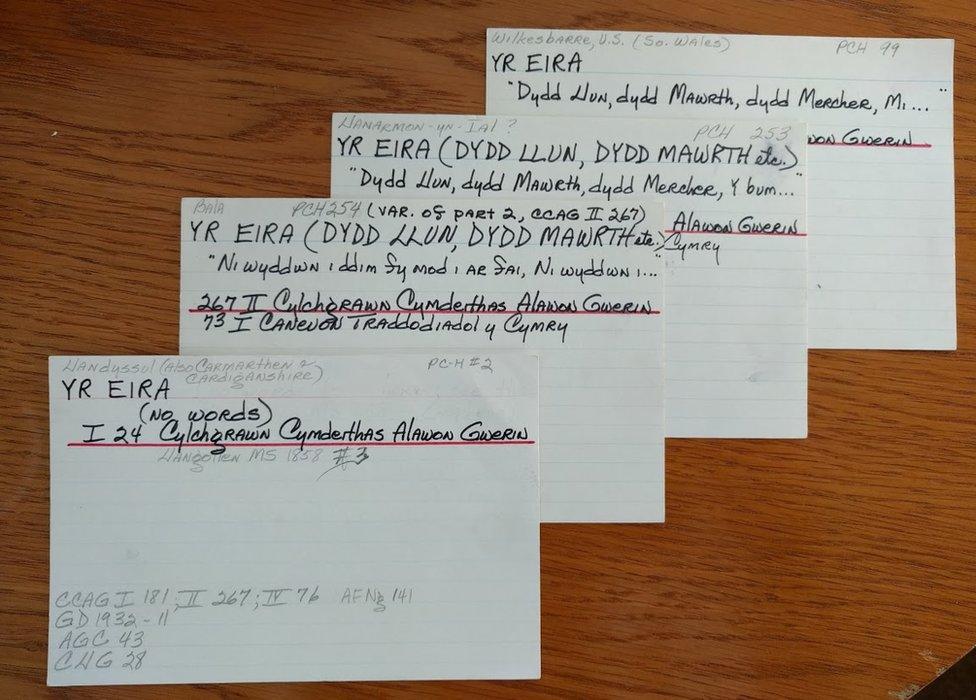 Wilkesbarre, U.S. (So. Wales) PCH 99
YR EIRA
"Dydd Llun, dydd Mawrth, dydd Mercher, Mi ... "
Alawon Gwerin
Llanarmon-yn-Ial ? PCH 253
YR EIRA (DYDD LLUN, DYDD MAWRTH etc.)
"Dydd Llun, dydd Mawrth, dydd Mercher, Y bum..."
Alawon Gwerin
Cymry
Bala PCH 254 (VAR. of part 2, CCAG II 267)
YR EIRA (DYDD LLUN, DYDD MAWRTH etc.)
"Ni wyddwn i ddim fy mod i ar fai, Ni wyddwn i...
267 II Cylchgrawn Cymderthas Alawon Gwerin
73 I Caneuon Traddodiadol y Cymry
Llandyssul (also Carmarthen &
Cardiganshire) PC-H #2
YR EIRA
(NO WORDS)
I 24 Cylchgrawn Cymderthas Alawon Gwerin
Llangollen MS 1858 #3
CCAG I 181; II 267; IV 76 AENg 141
GD 1932-11
AGC 43
CLlG 28